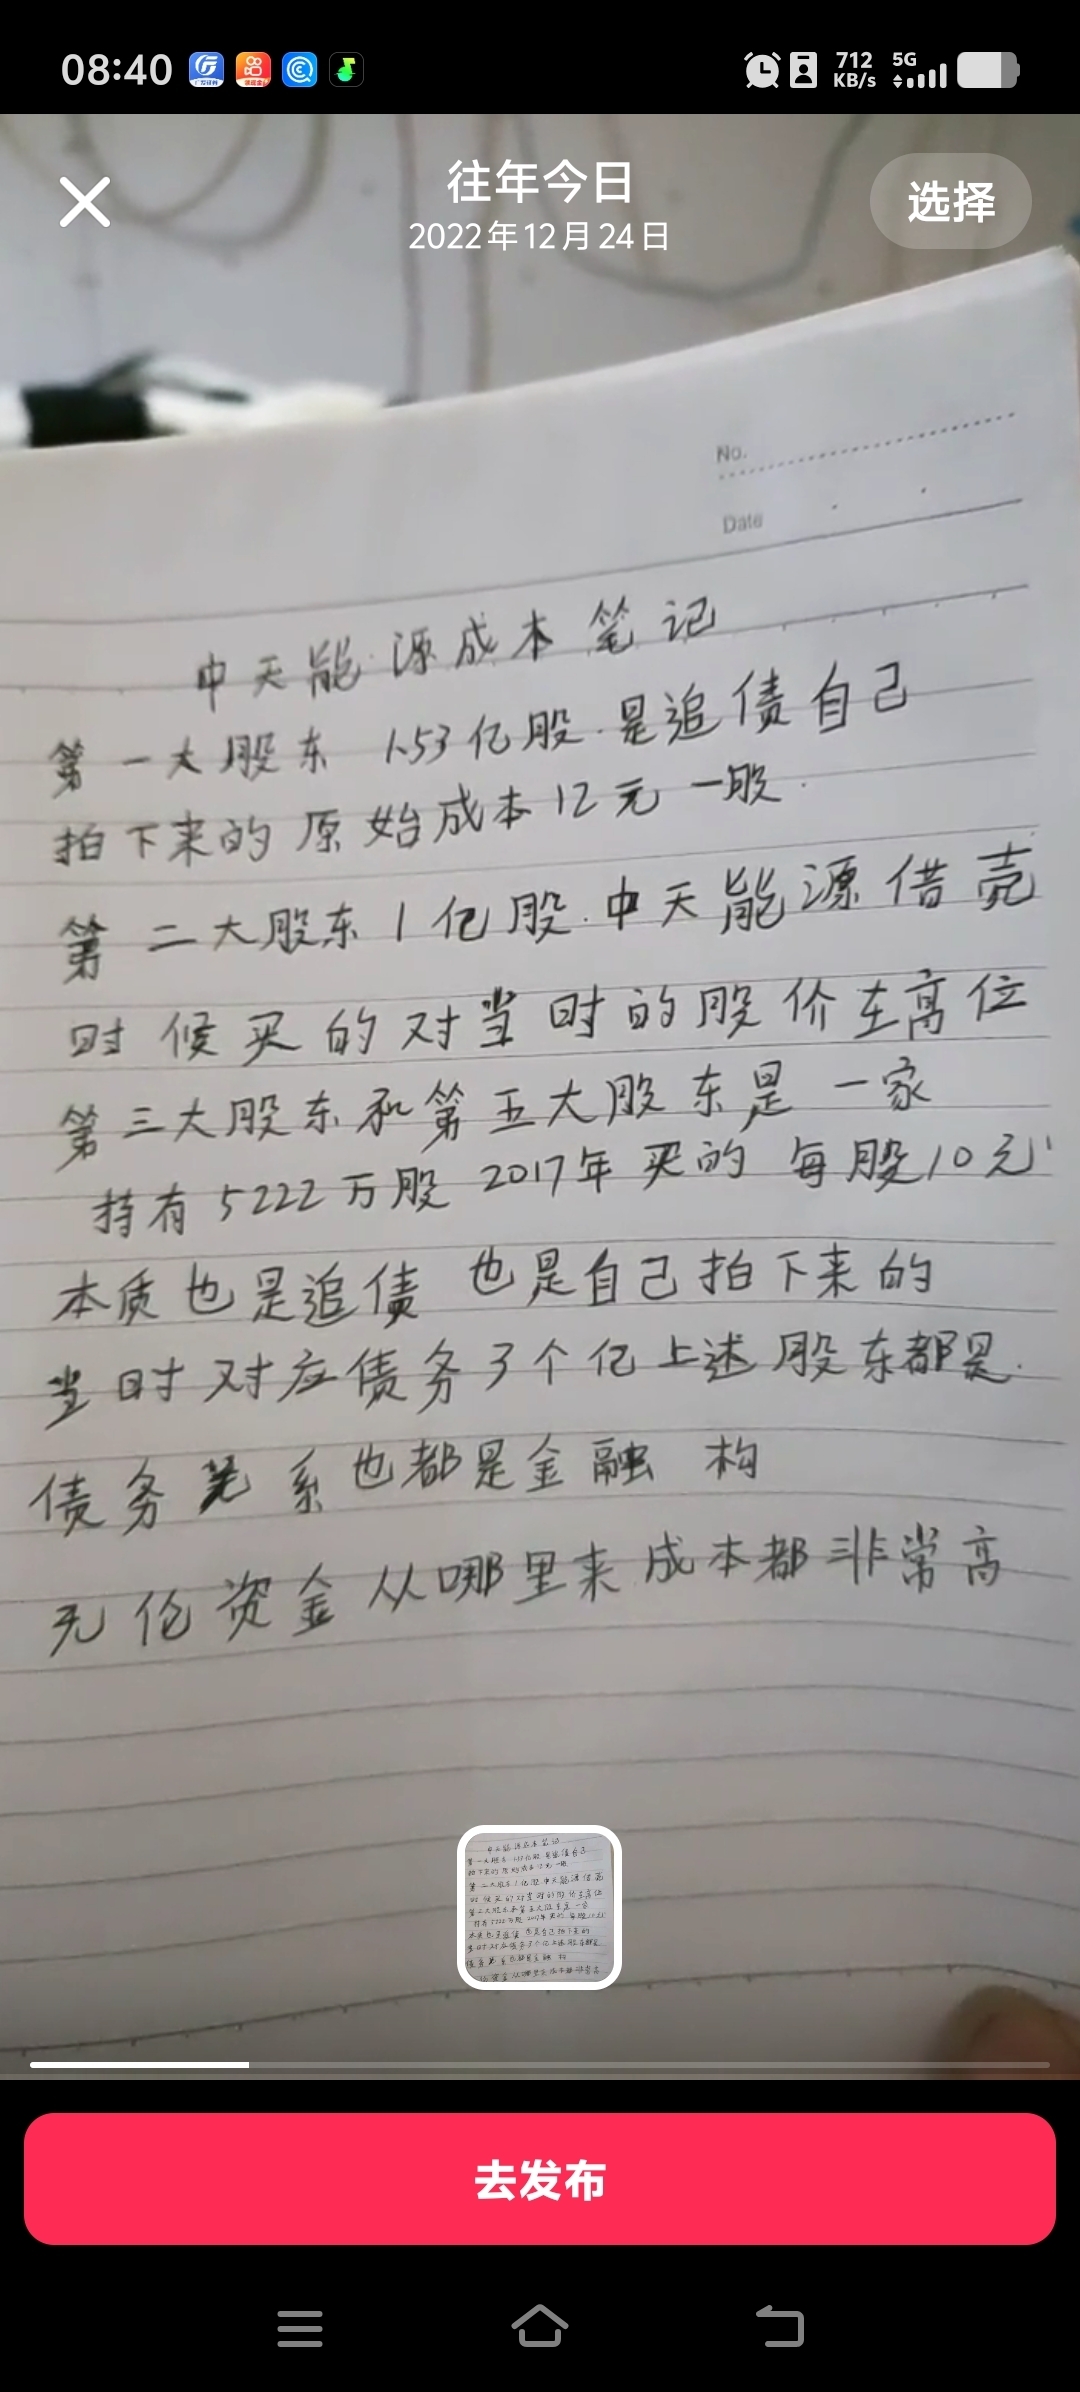 08:40
712 KB/s 5G
往年今日
2022年12月24日
选择
No.
Date
中天能源成本笔记
第一大股东 1.53亿股.是追债自己
拍下来的原始成本12元一股.
第二大股东1亿股.中天能源借壳
时候买的对当时的股价在高位
第三大股东和第五大股东是一家
持有5222万股 2017年买的 每股10元
本质也是追债 也是自己拍下来的
当时对应债务3个亿上述股东都是.
债务关系也都是金融 构
无伦资金从哪里来成本都非常高
去发布